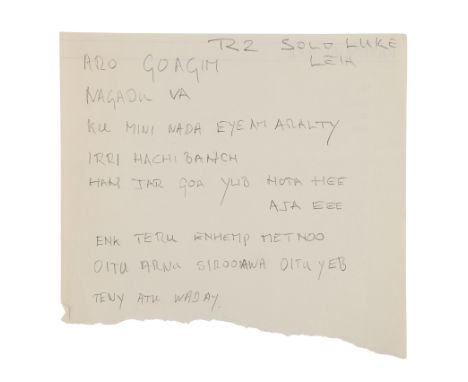 R2 SOLO LUKE
LEIA
ARO GOAGIM
NAGADU VA
KU MINI NADA EYEAM ARALTY
IRRI HACHI BANCH
HAN JAR GOA YUB NOTA HEE
AJA EEE
ENK TERU ENHEMP METNOO
OITU ARNU SIROOAWA OITU YEB
TENY ATU WADAY.